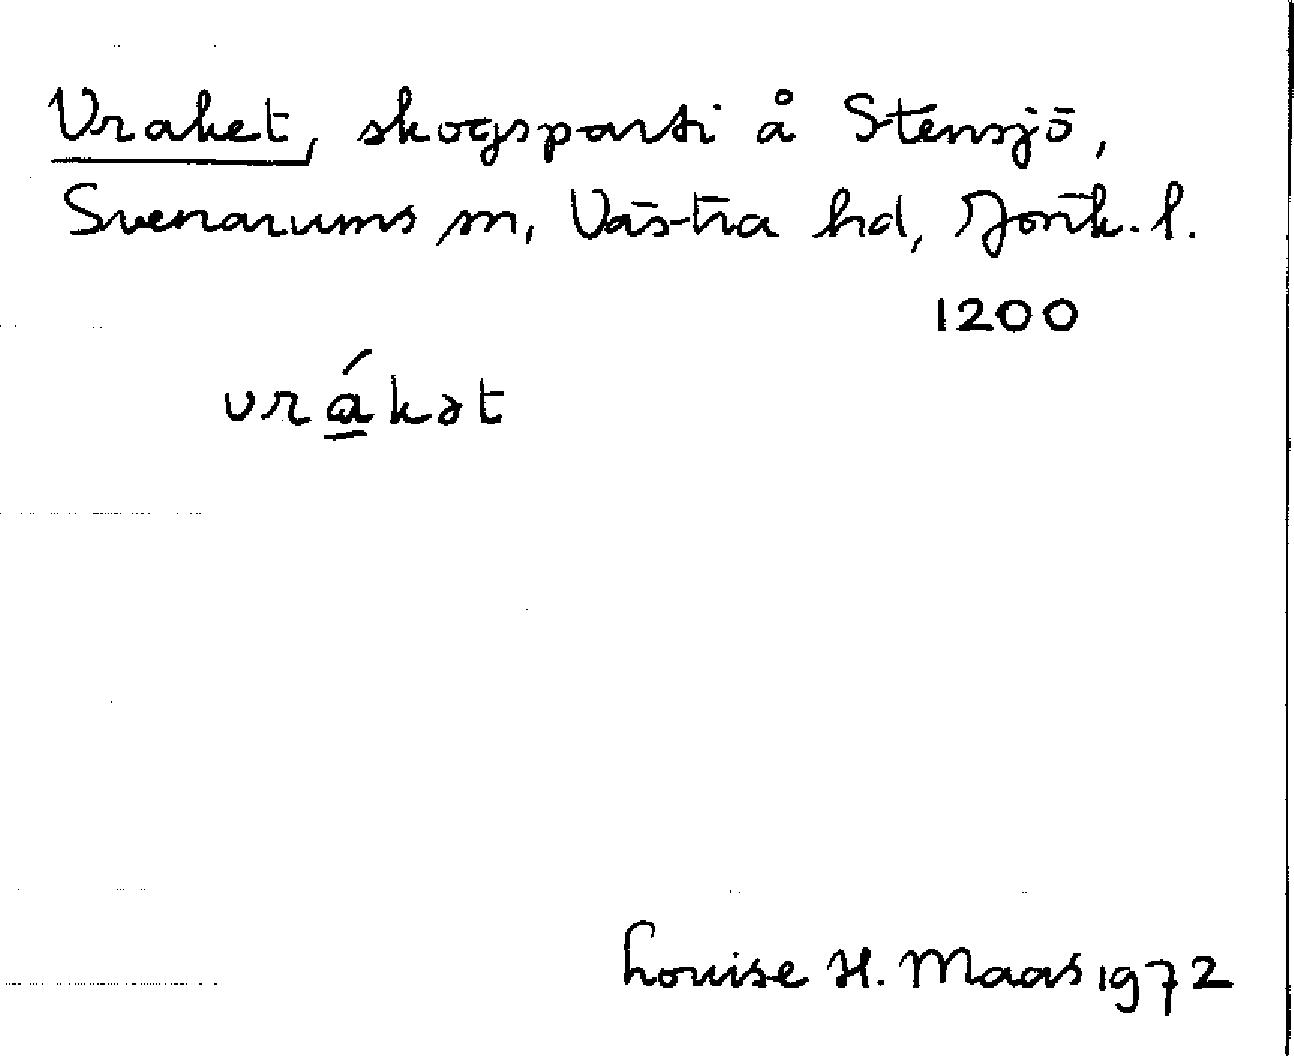 Vraket, skogsparti å Stensjö,
Svenarums sn, Västra hd, Jönk. l.
1200
vrákət
Louise H. Maas 1972